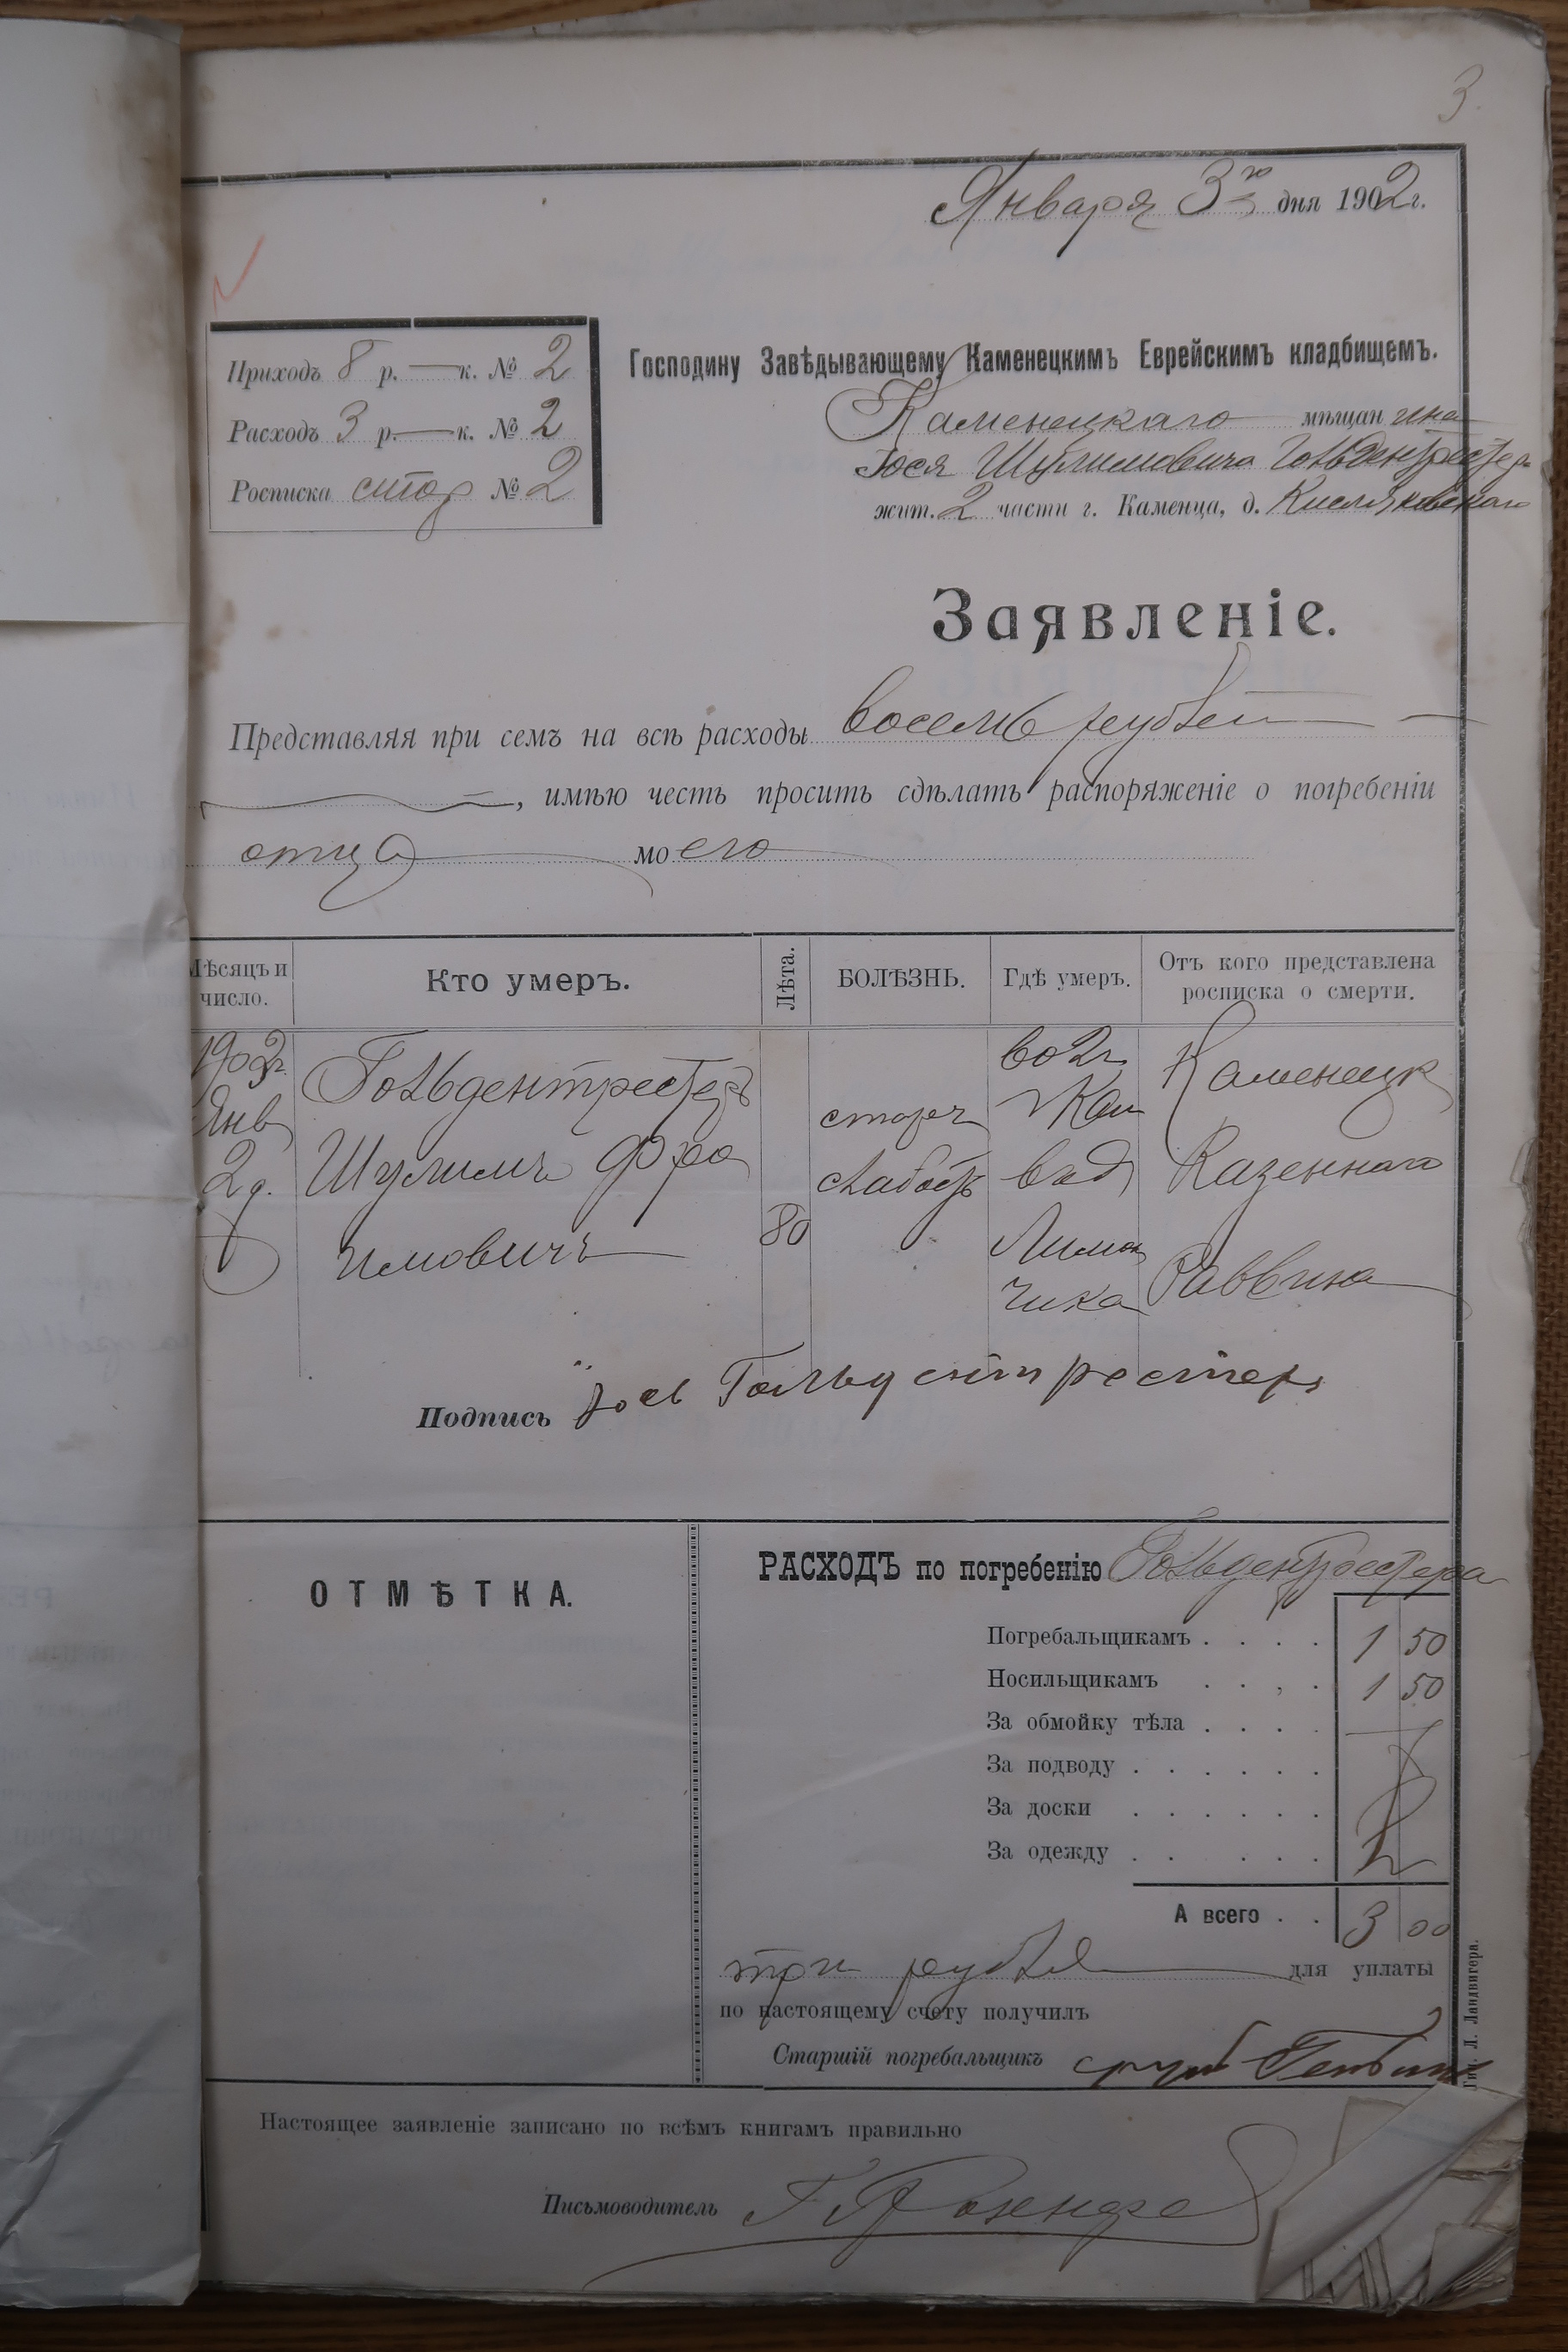 3
Января 3го дня 1902 г.
Приходъ 8 р. — к. № 2
Расходъ 3 р. — к. № 2
Росписка стор № 2
Господину Завѣдывающему Каменецкимъ Еврейскимъ кладбищемъ.
Каменецкаго мѣщанина
Іося Шулимовича Гольдентрестер
жит. 2 части г. Каменца, д. Кисляковскаго
Заявленіе.
Представляя при семъ на всѣ расходы восемь рублей
, имѣю честь просить сдѣлать распоряженіе о погребеніи
отца моего
Мѣсяцъ и число.
Кто умеръ.
Лѣта.
БОЛѢЗНЬ.
Гдѣ умеръ.
Отъ кого представлена росписка о смерти.
1902г.
Янв
2 д.
Гольдентрестеръ
Шулимъ Фро
имовичъ
80
старч
слабость
во 2 ч
г Кам
в д
Лимон
чика
Каменецк
Казеннаго
Раввина
Подпись Іось Гольдентрестеръ
ОТМѢТКА.
РАСХОДЪ по погребенію Гольдентрестера
Погребальщикамъ . . . . 1 50
Носильщикамъ . . , . 1 50
За обмойку тѣла . . . . —
За подводу . . . . . .
За доски . . . . . .
За одежду . . . . . .
А всего . . 3 00
три рубля для уплаты
по настоящему счету получилъ
Старшій погребальщикъ
Настоящее заявленіе записано по всѣмъ книгамъ правильно
Письмоводитель
Л. Ландвигера.